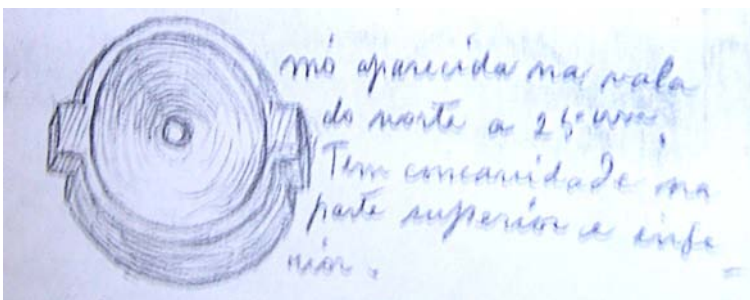 mó aparecida na vala
do norte a 25 cm,
Tem concavidade na
parte superior e infe
rior. =